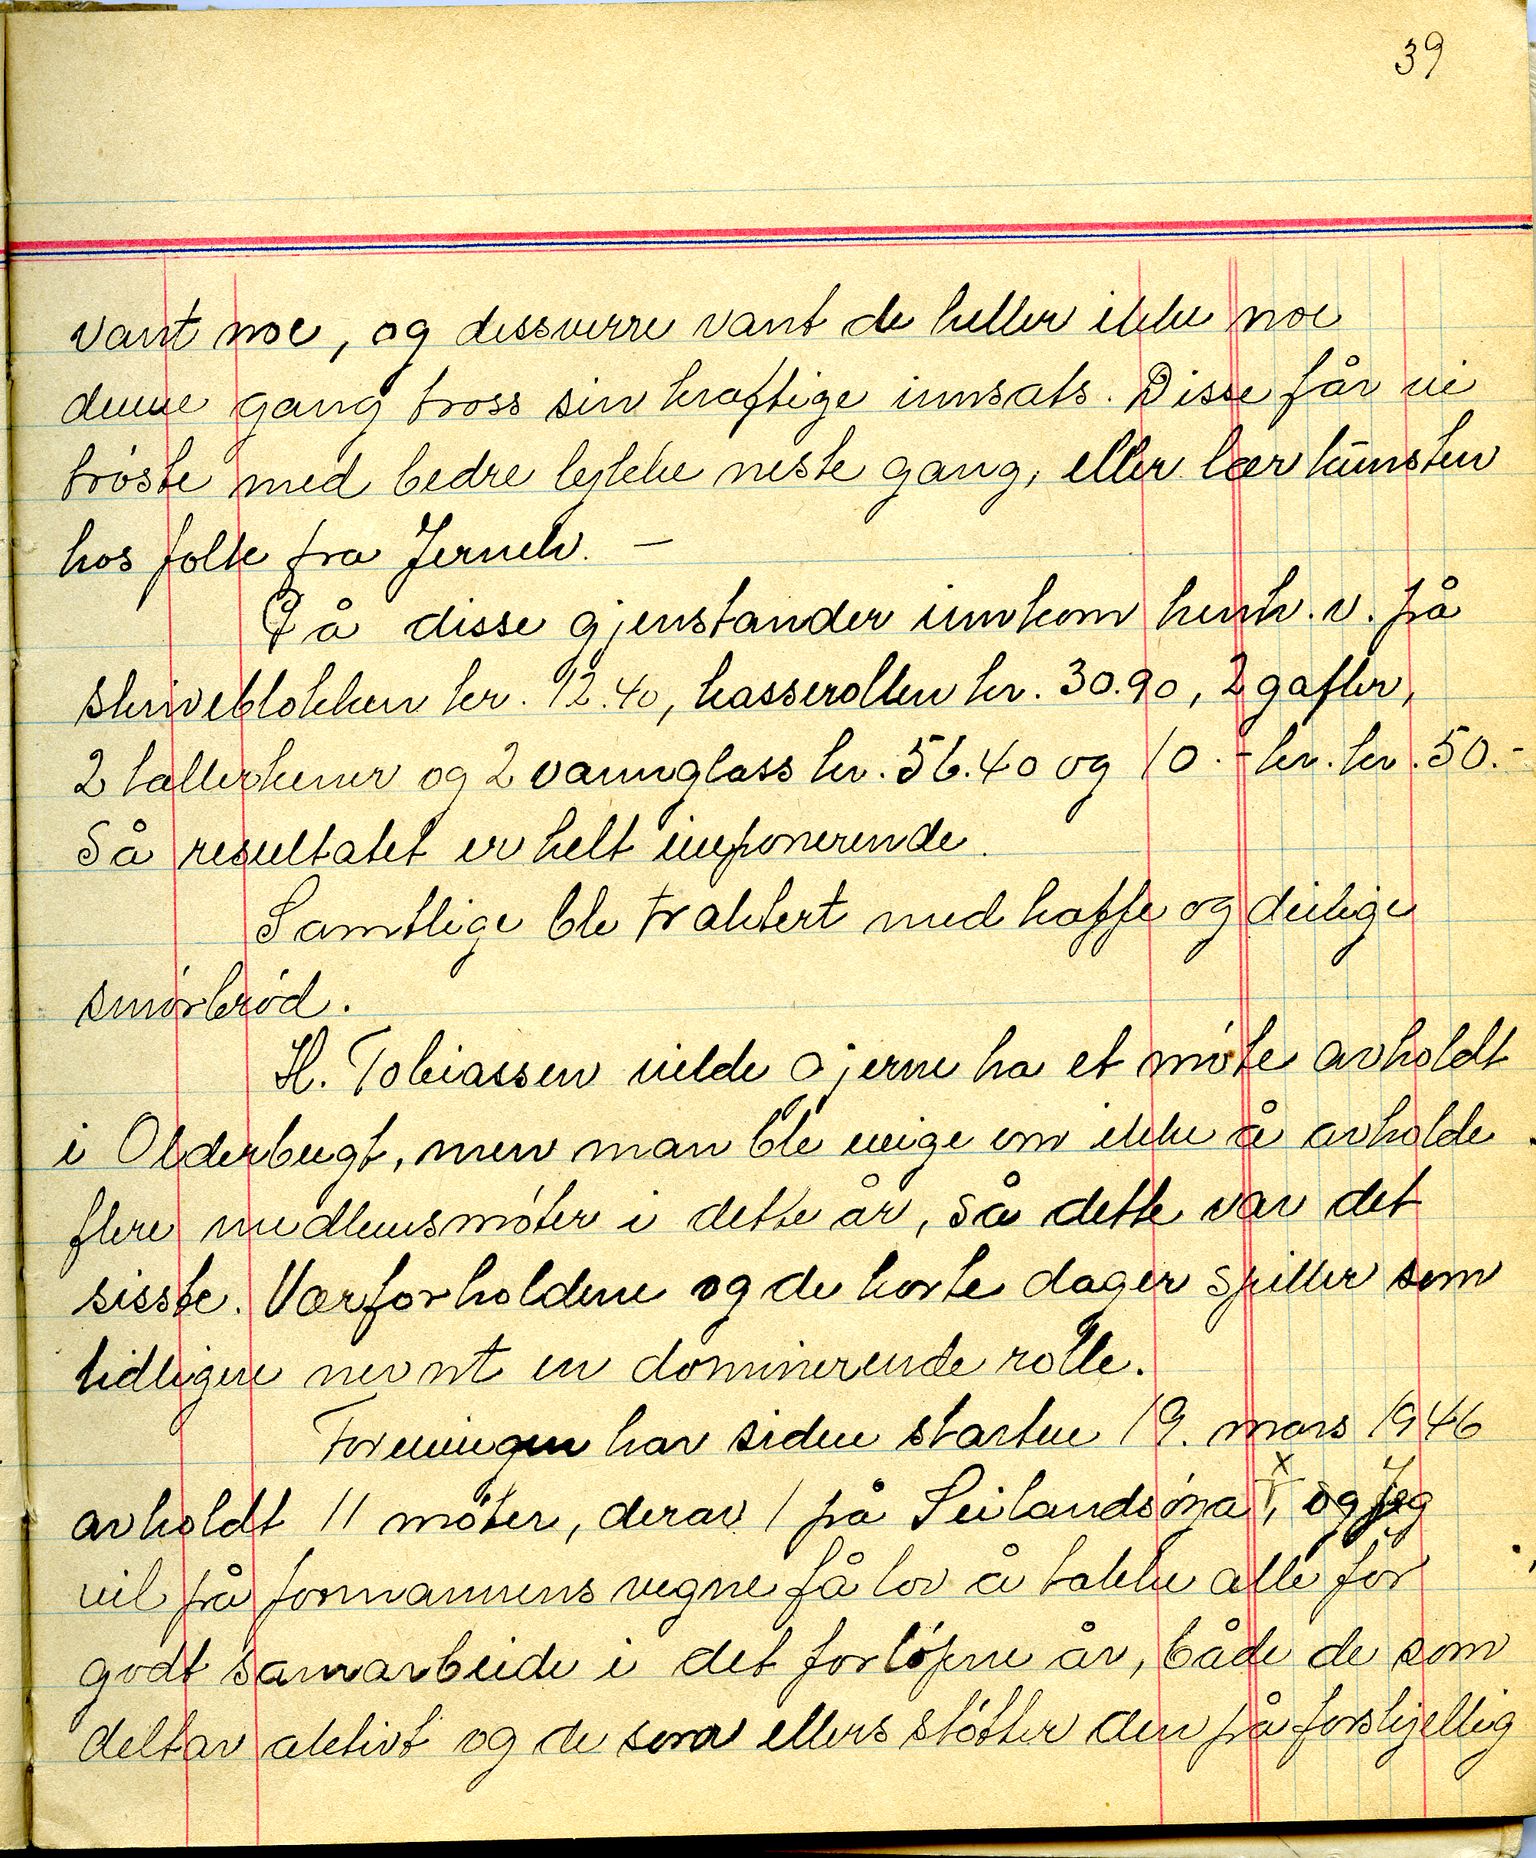 39
vant noe, og dessverre vant de heller ikke noe
denne gang tross sin kraftige innsats. Disse får vi
trøste med bedre lykke neste gang, eller lær kunsten
hos folk fra Jernelv. —
På disse gjenstander innkom henh. v. på
skriveblokken kr. 12.40, kasserollen kr. 30.90, 2 gafler,
2 tallerkener og 2 vannglass kr. 56.40 og 10.- kr. kr. 50.-
Så resultatet er helt imponerende.
Samtlige ble traktert med kaffe og deilige
smørbrød.
H. Tobiassen vilde gjerne ha et møte avholdt
i Olderbugt, men man ble enige om ikke å avholde
flere medlemsmøter i dette år, så dette var det
sisste. Værforholdene og de korte dager spiller som
tidligere nevnt en dominerende rolle.
Foreningen har siden starten 19. mars 1946
avholdt 11 møter, derav 1 på Seilandsøya x, og jeg
vil på formannens vegne få lov å takke alle for
godt samarbeide i det forløpne år, både de som
deltar aktivt og de som ellers støtter den på forskjellig